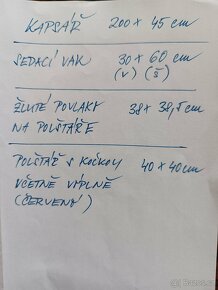 KAPSÁŘ 200 x 45 cm
SEDACÍ VAK 30 x 60 cm
(v) (š)
ŽLUTÉ POVLAKY 38 x 38,5 cm
NA POLŠTÁŘE
POLŠTÁŘ S KOČKOU 40 x 40 cm
VČETNĚ VÝPLNĚ
(ČERVENÝ)
Bazoš.cz